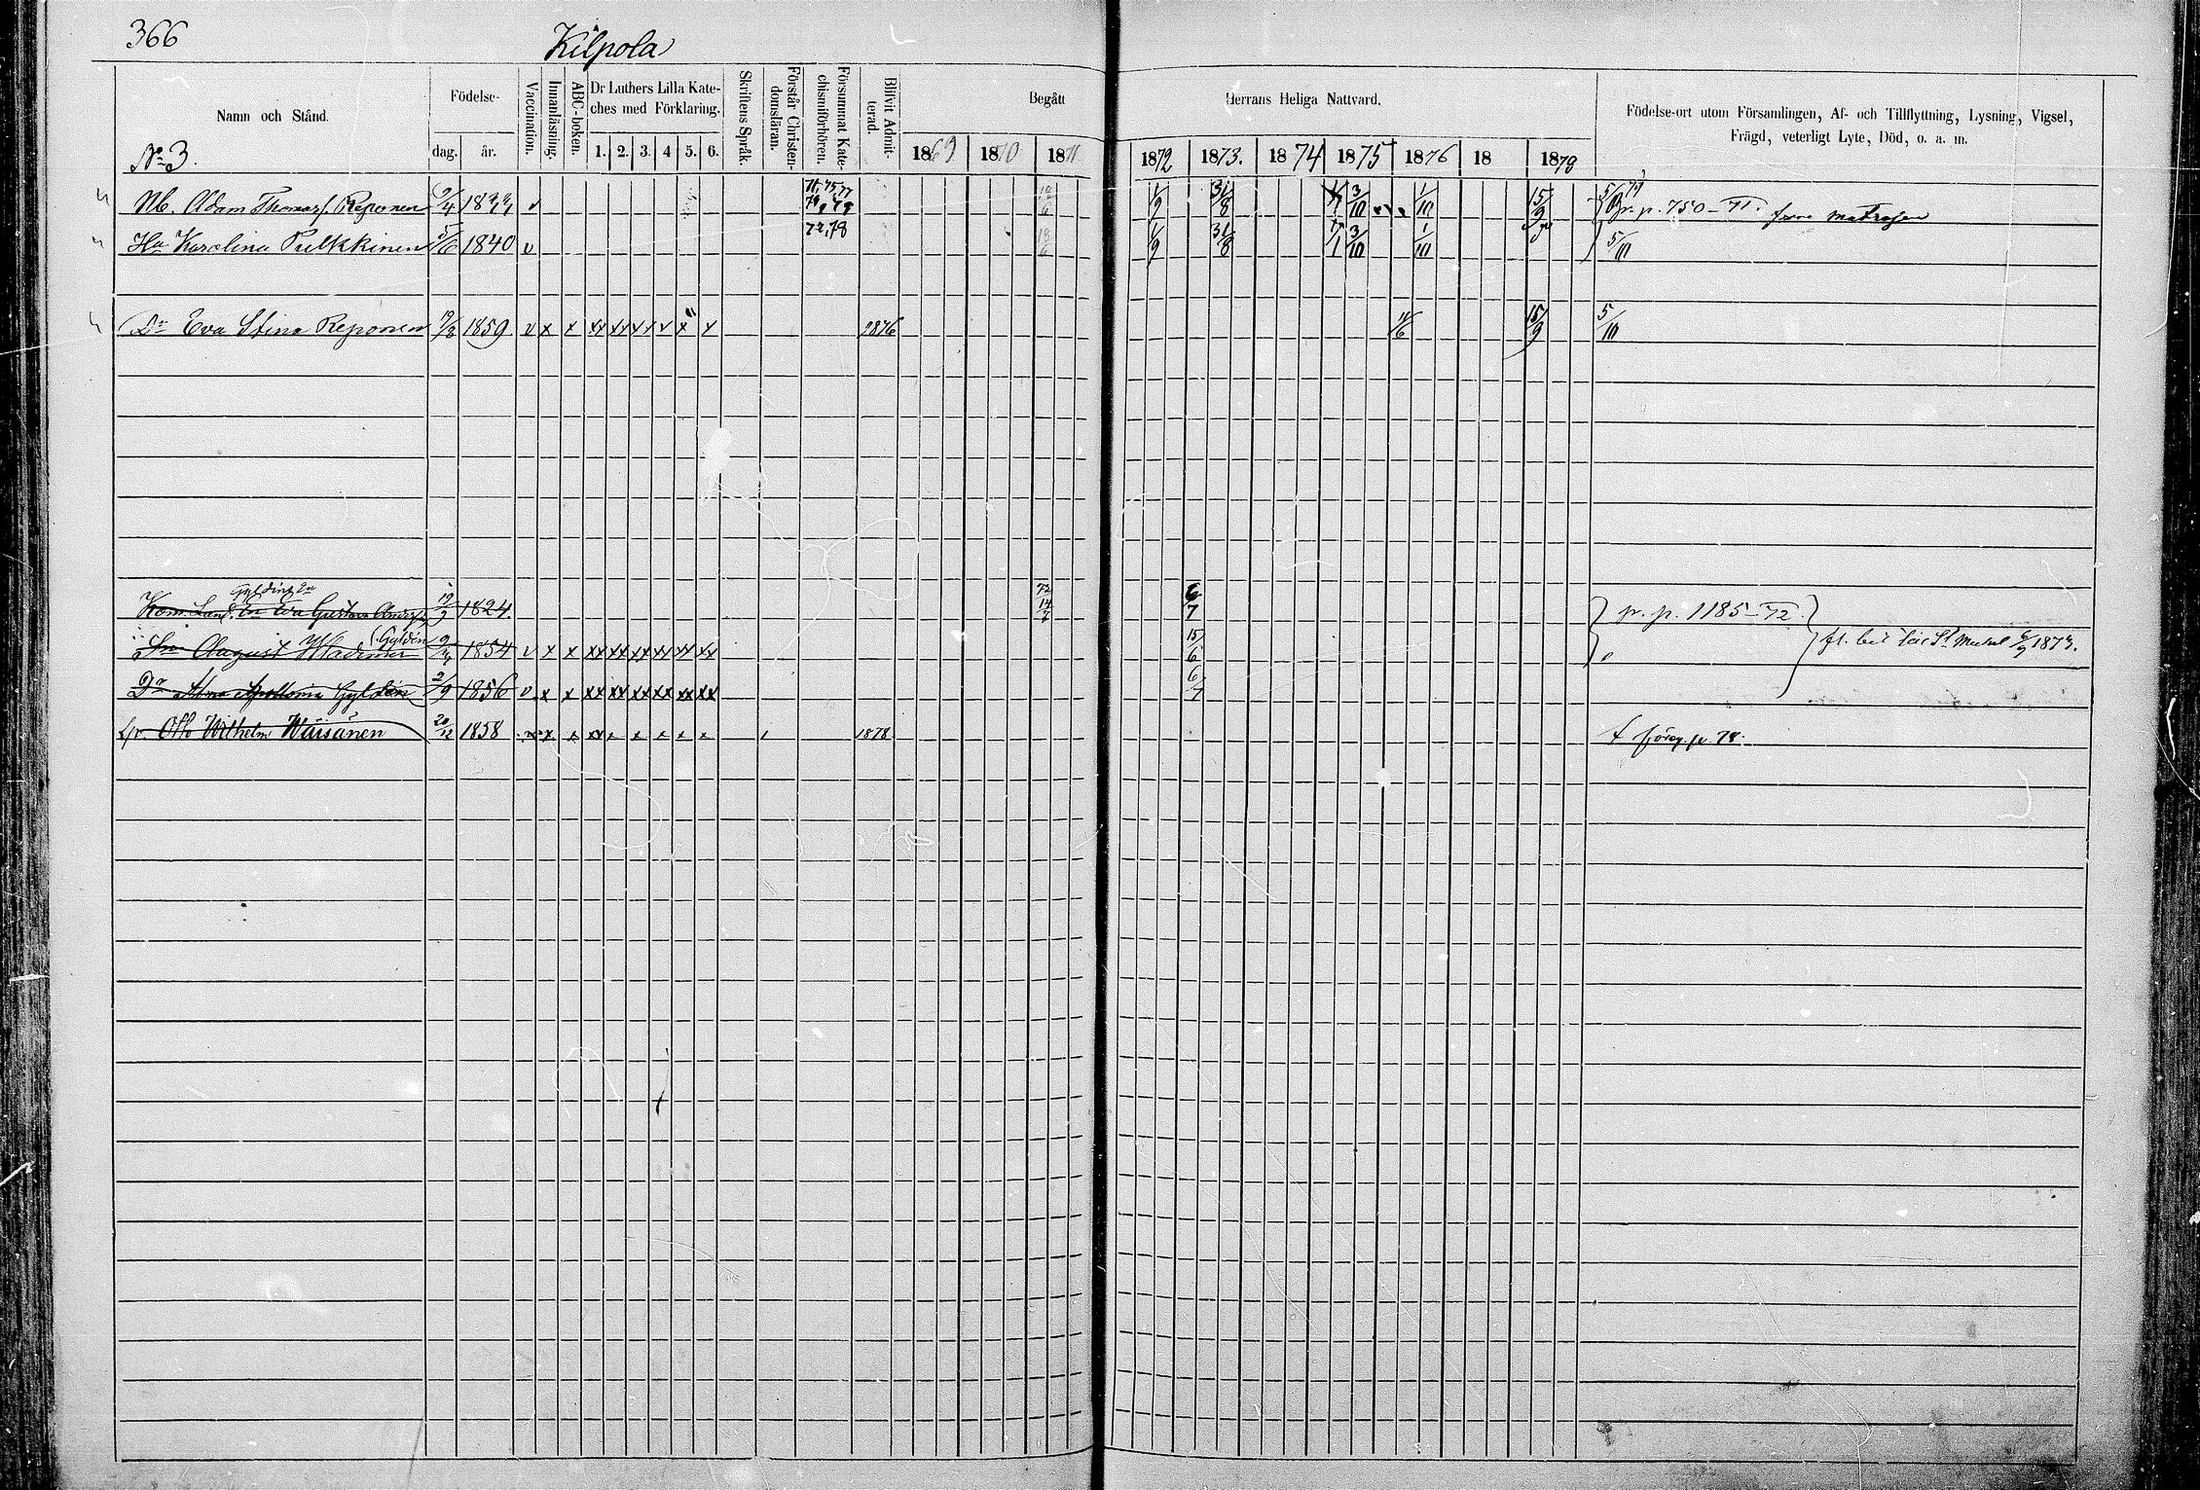 366
Kilpola
Namn och Stånd.
Födelse-
dag. år.
Vaccination.
Innanläsning.
ABC-boken.
Dr Luthers Lilla Kate-
ches med Förklaring.
1. 2. 3. 4 5. 6.
Skriftens Språk.
Förstår Christen-
domsläran.
Försummat Kate-
chismiförhören.
Blifvit Admit-
terad.
Begått
Herrans Heliga Nattvard.
1869 1870 1871
1872 1873. 1874 1875 1876 18 1878
Födelse-ort utom Församlingen, Af- och Tillflyttning, Lysning, Vigsel,
Frägd, veterligt Lyte, Död, o. a. m.
No 3.
Adam Thomasf. Reponen 2/4 18 v 1/9 31/8 3/10 1/10 15/9 p. p. 750-71.
Hu Karolina Pulkkinen 5/6 1840 v 72,78 1/9 31/8 1/1 3/10 1/10 5/10
Dr Eva Stina Reponen 1859 v x x xx xx xx x x x 1876 11/6 15/9 5/10
Eva Gustava 19/9 1824. 72 14/7 6/7 p. p. 1185-72.
August Wladimir Gyldén 1854 v x x xx xx xx xx xx xx 15/6 1873.
Dr Alma Apollonia Gyldén 2/9 1856 v x x xx xx xx xx xx xx 6/7
Otto Wilhelm Wäisänen 20/12 1858 x x xx x x x x x 1878